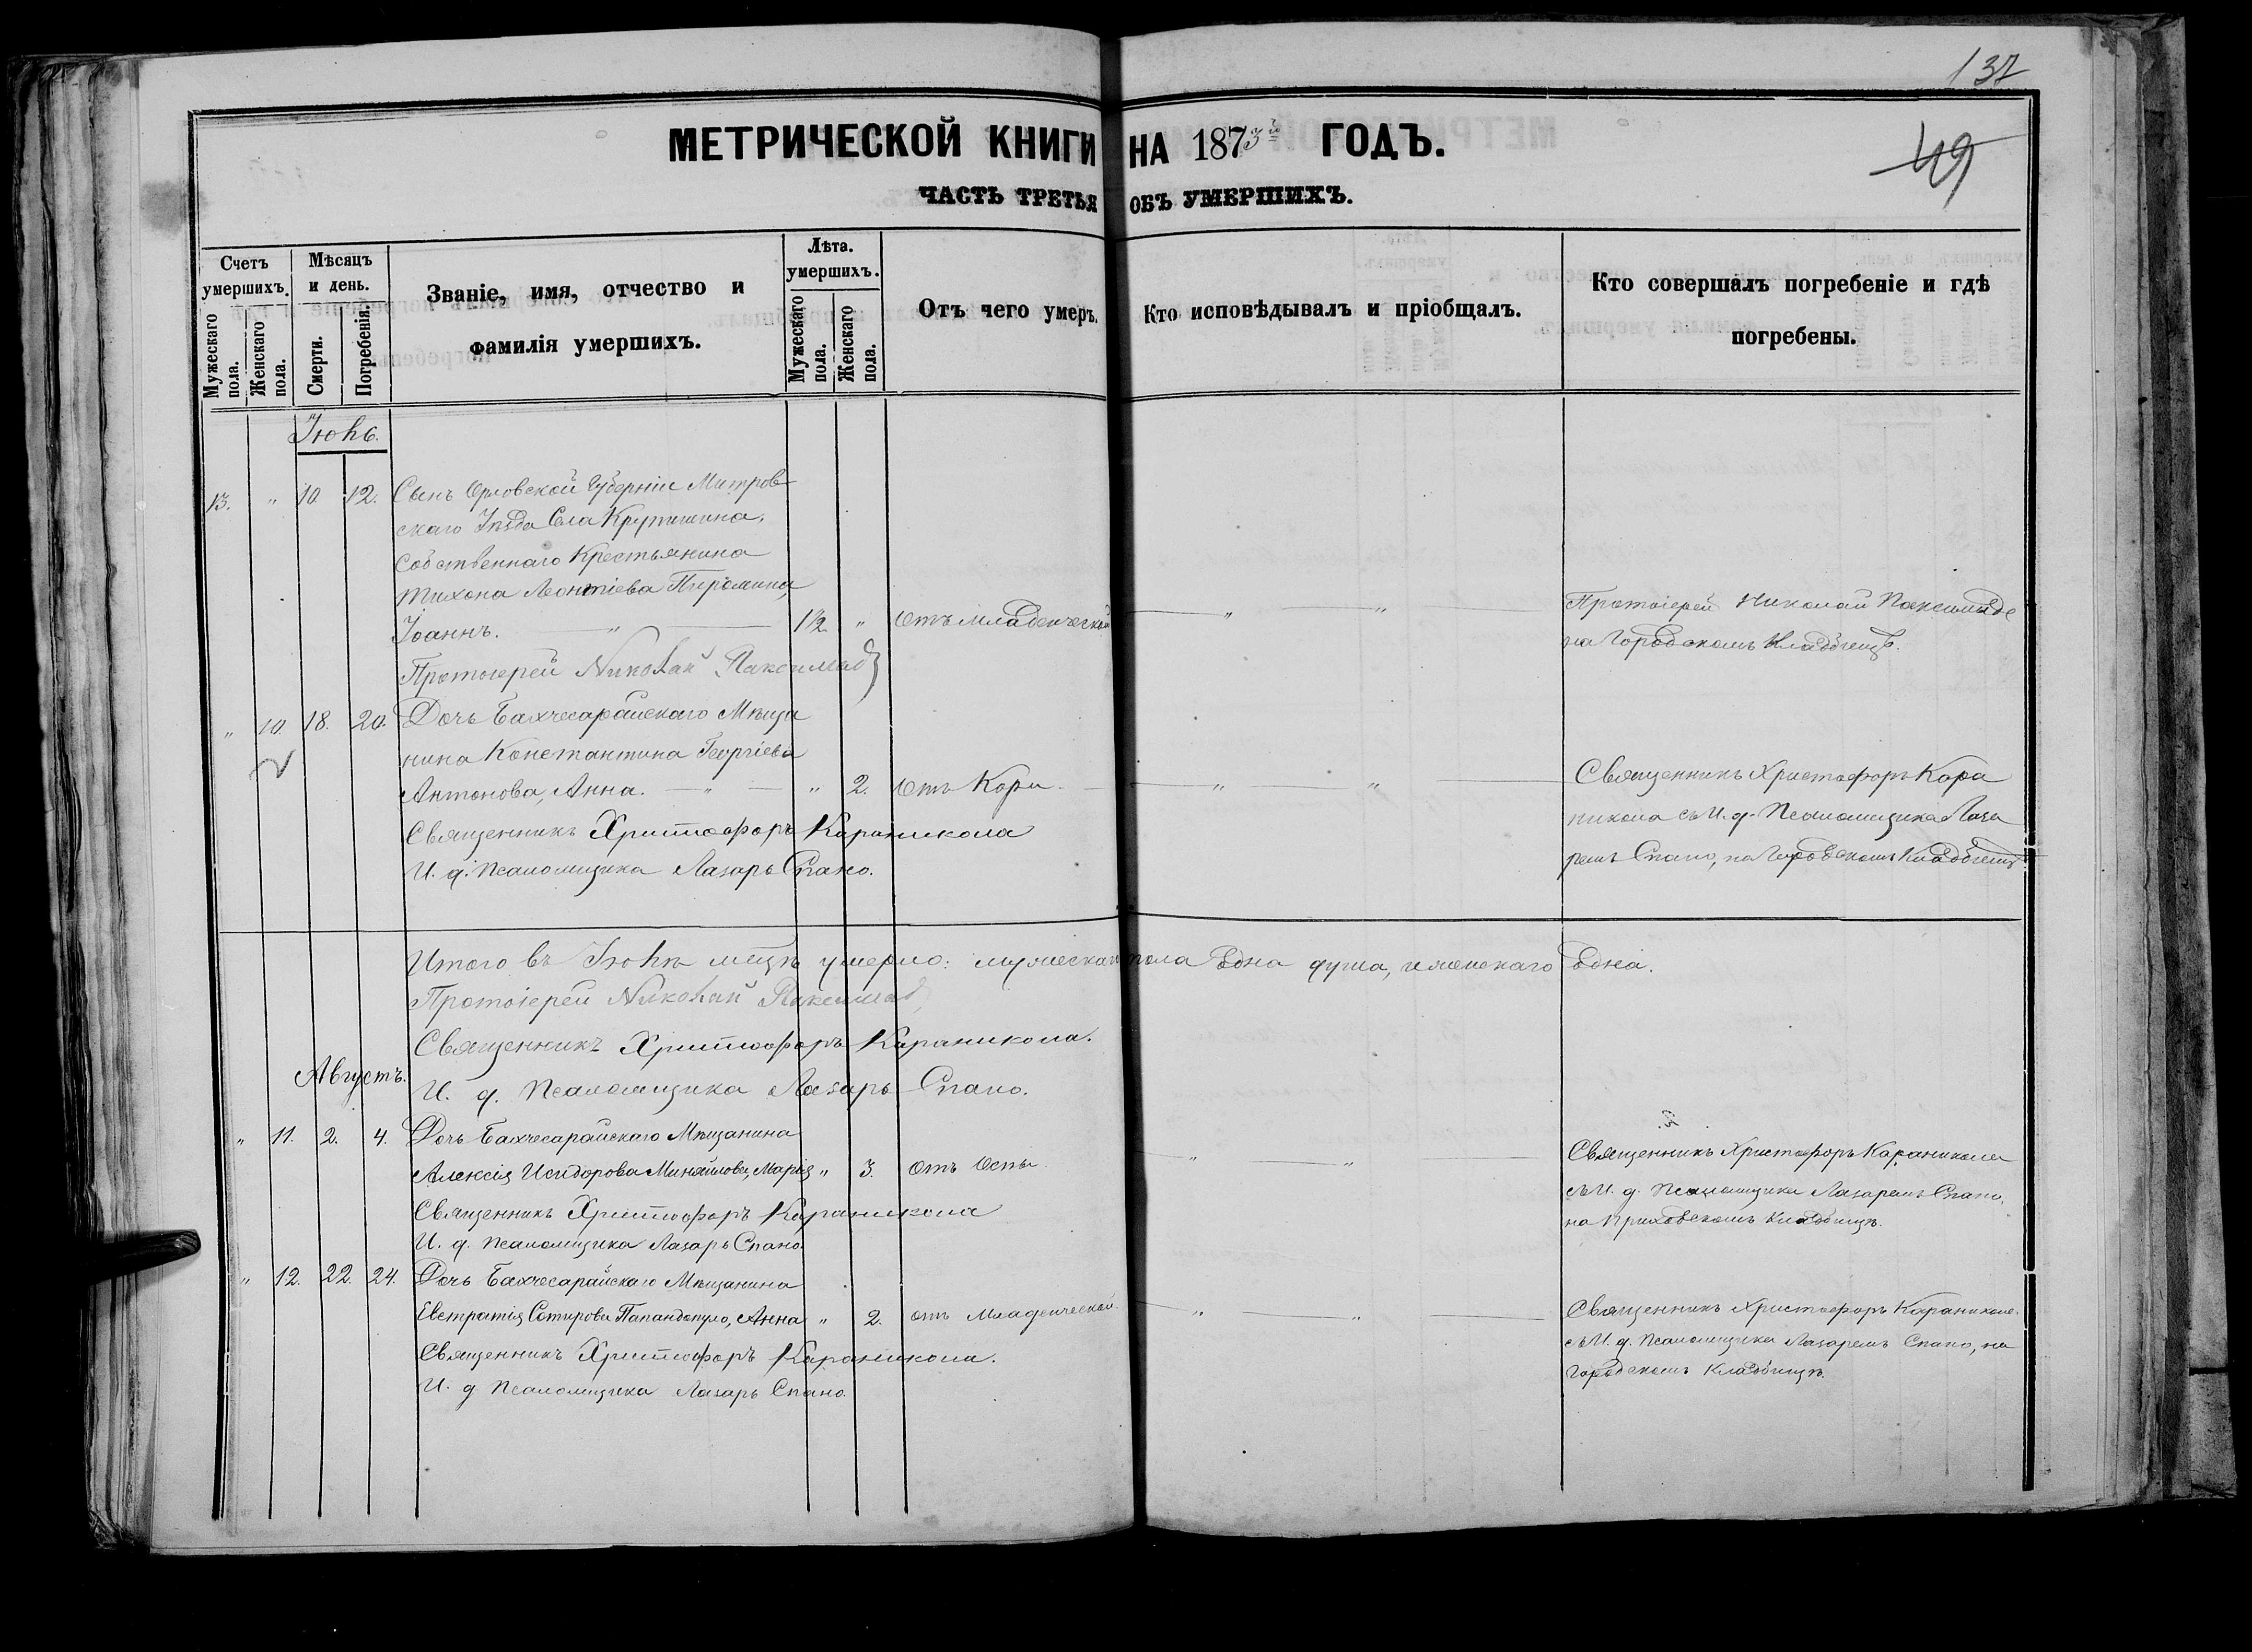 137
49
МЕТРИЧЕСКОЙ КНИГИ НА 1873й ГОДЪ.
ЧАСТЬ ТРЕТЬЯ ОБЪ УМЕРШИХЪ.
Счетъ умершихъ.
Мужескаго пола.
Женскаго пола.
Мѣсяцъ и день.
Смерти.
Погребенія.
Званіе, имя, отчество и
фамилія умершихъ.
Лѣта.
умершихъ.
Мужескаго пола.
Женскаго пола.
Отъ чего умеръ.
Кто исповѣдывалъ и пріобщалъ.
Кто совершалъ погребеніе и гдѣ
погребены.
Іюнь.
13. " 10. 12. Сынъ Орловской Губерніи Митров
скаго Уѣзда Села
Собственнаго Крестьянина
Тихона Леонтіева
Іоаннъ. " 1½ " Отъ младенческой " "
Протоіерей Николай
на Городскомъ Кладбищѣ.
Протоіерей Николай
" 10. 18. 20. Дочь Бахчесарайскаго Мѣща
нина Константина Георгіева
Антонова, Анна. " " 2. Отъ Кори. " "
Священникъ Христофоръ Кара
никола съ И. д. Псаломщика Лаза
ремъ Спано, на Городскомъ Кладбищѣ
Священникъ Христофоръ Караникола
И. д. Псаломщика Лазарь Спано.
Итого въ Іюнѣ мцѣ умерло: мужеска пола Една душа, и женскаго Една.
Протоіерей Николай
Священникъ Христофоръ Караникола.
И. д. Псаломщика Лазарь Спано.
Августъ.
" 11. 2. 4. Дочь Бахчесарайскаго Мѣщанина
Алексія Исидорова Михайлова, Марія " 3. Отъ Оспы " "
Священникъ Христофоръ Караникола
съ И. д. Псаломщика Лазаремъ Спано,
на Кладбищѣ.
Священникъ Христофоръ Караникола
И. д. Псаломщика Лазарь Спано.
" 12. 22. 24. Дочь Бахчесарайскаго Мѣщанина
Евстратія Сотирова Папандопуло, Анна " 2. отъ Младенческой. " "
Священникъ Христофоръ Караникола
съ И. д. Псаломщика Лазаремъ Спано, на
Городскомъ Кладбищѣ.
Священникъ Христофоръ Караникола.
И. д Псаломщика Лазарь Спано.